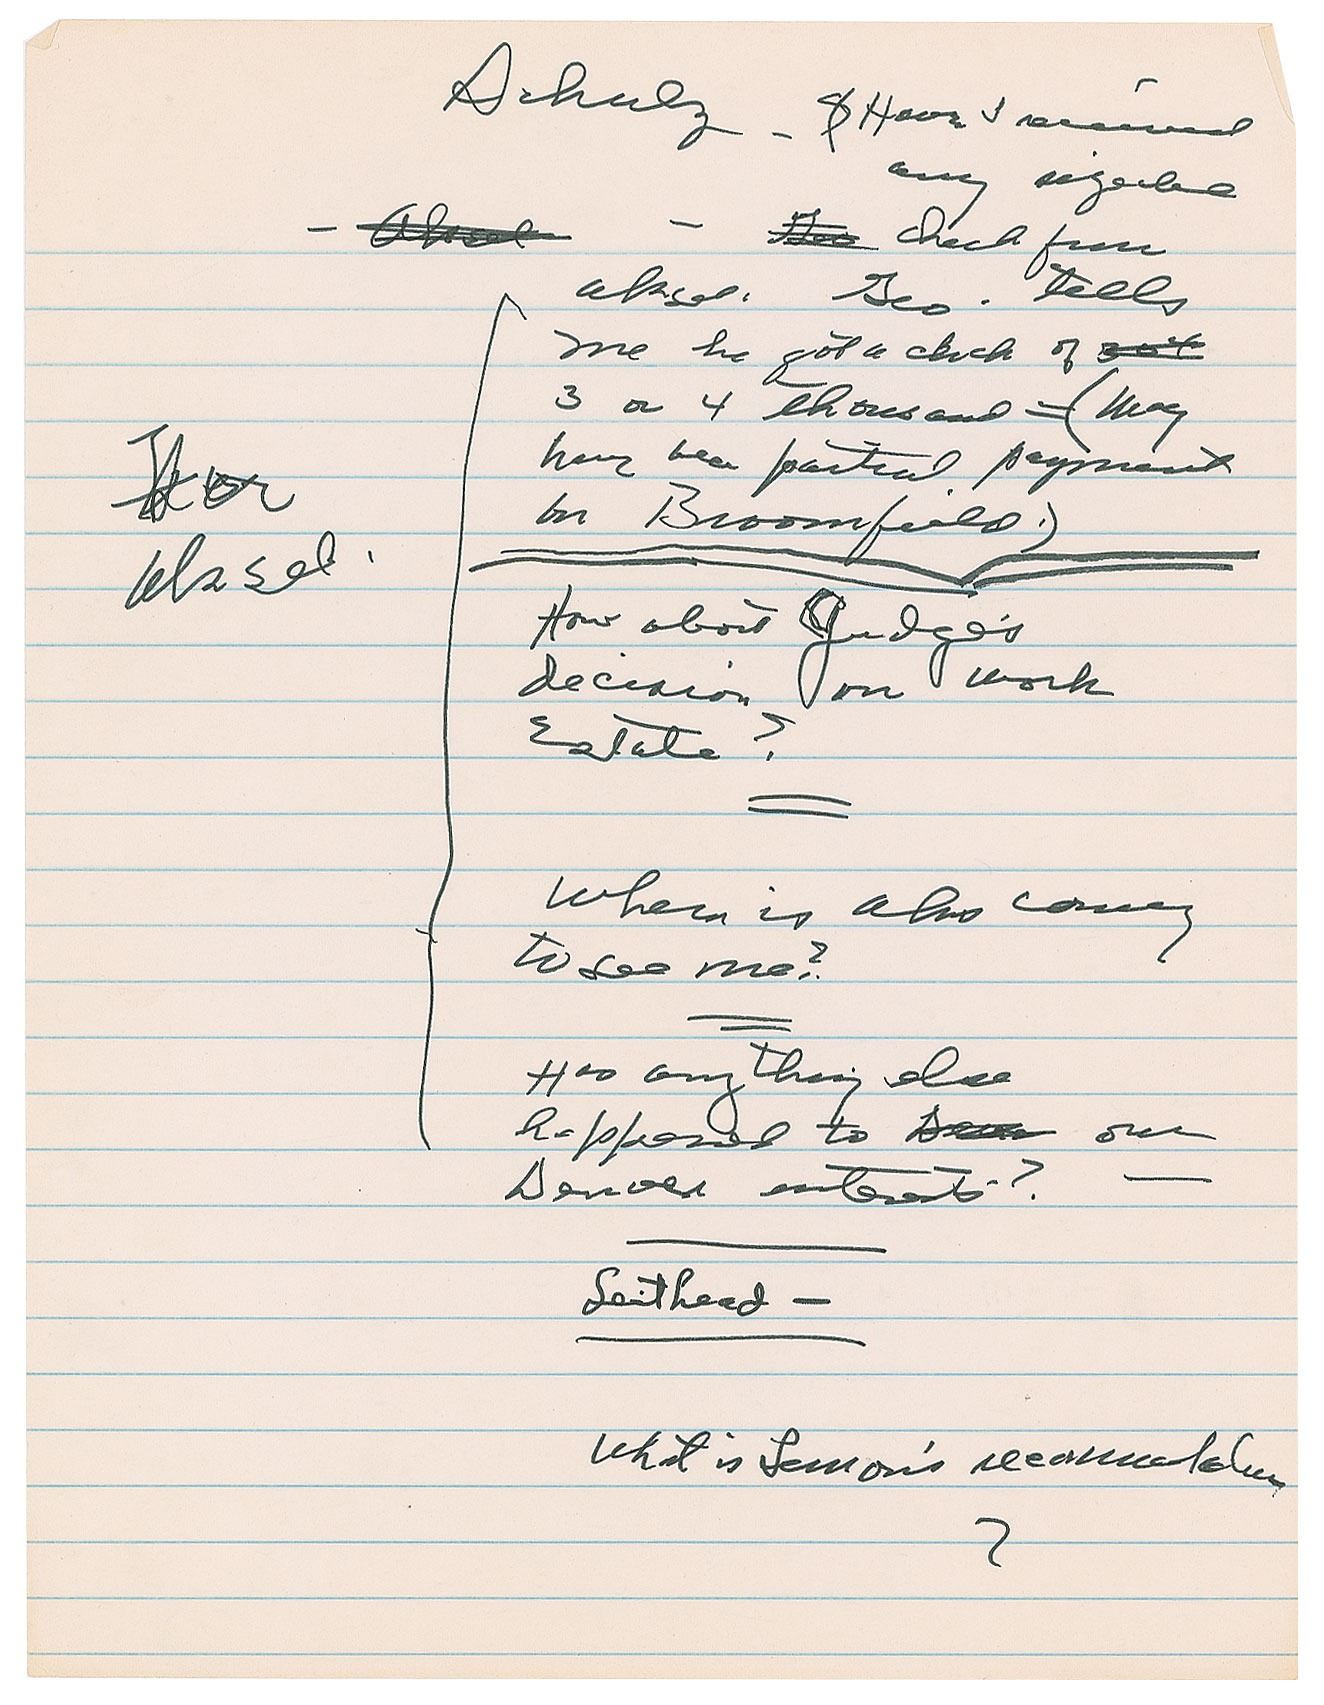 Schulz - Have I received
any sizeable
- Aksel - Geo check from
Aksel. Geo. tells
me he got a check of
3 or 4 thousand = (May
have been partial payment
on Broomfield.)
For
Aksel.
How about Judge's
decision on work
Estate?
When is Aks coming
to see me?
Has anything else
happened to our
Denver interests?
Leithead -
What is Lemon's recommendation
?